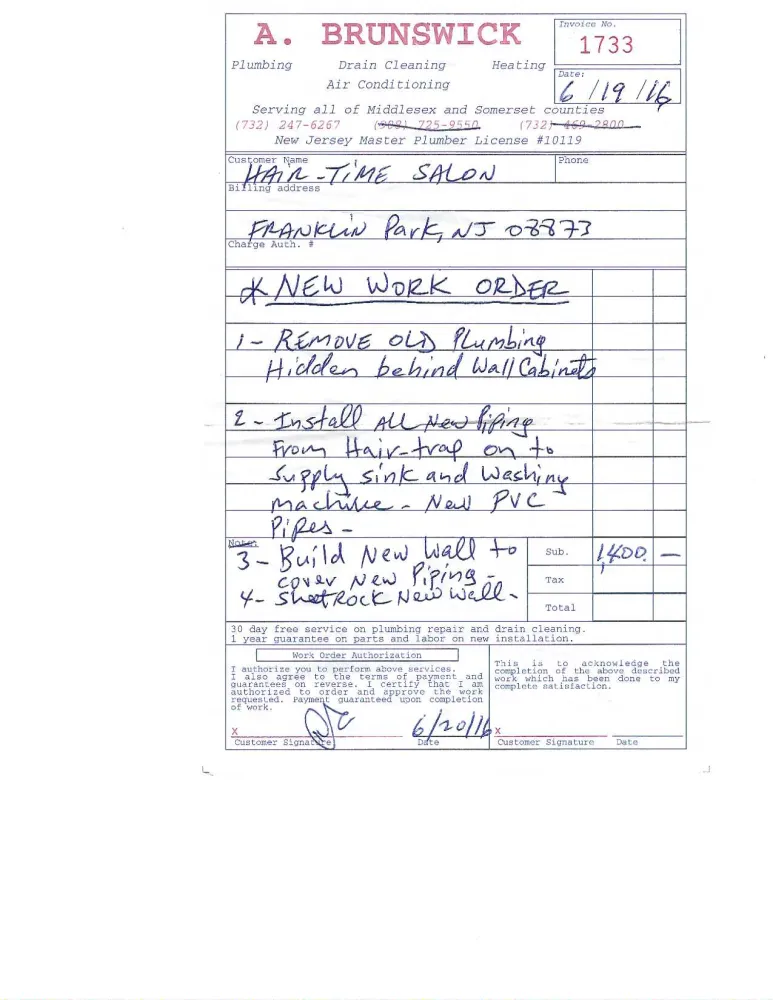 A. BRUNSWICK
Invoice No.
1733
Plumbing Drain Cleaning Heating
Air Conditioning
Date:
6/19/16
Serving all of Middlesex and Somerset counties
(732) 247-6267 (908) 725-9550 (732) 469-2800
New Jersey Master Plumber License #10119
Customer Name
Phone
HAIR-TIME SALON
Billing address
FRANKLIN Park, NJ 08873
Charge Auth. #
* NEW WORK ORDER
1- REMOVE OLD Plumbing
Hidden behind Wall Cabinets
2- Install ALL New Piping
From Hair-trap on to
Supply sink and Washing
machine - New PVC
Pipes -
Note:
3- Build New Wall to
cover New Piping -
4- SheetROCK New Wall -
Sub. 1,400. —
Tax
Total
30 day free service on plumbing repair and drain cleaning.
1 year guarantee on parts and labor on new installation.
Work Order Authorization
I authorize you to perform above services.
I also agree to the terms of payment and
guarantees on reverse. I certify that I am
authorized to order and approve the work
requested. Payment guaranteed upon completion
of work.
X
6/20/16
Customer Signature Date
This is to acknowledge the
completion of the above described
work which has been done to my
complete satisfaction.
X
Customer Signature Date